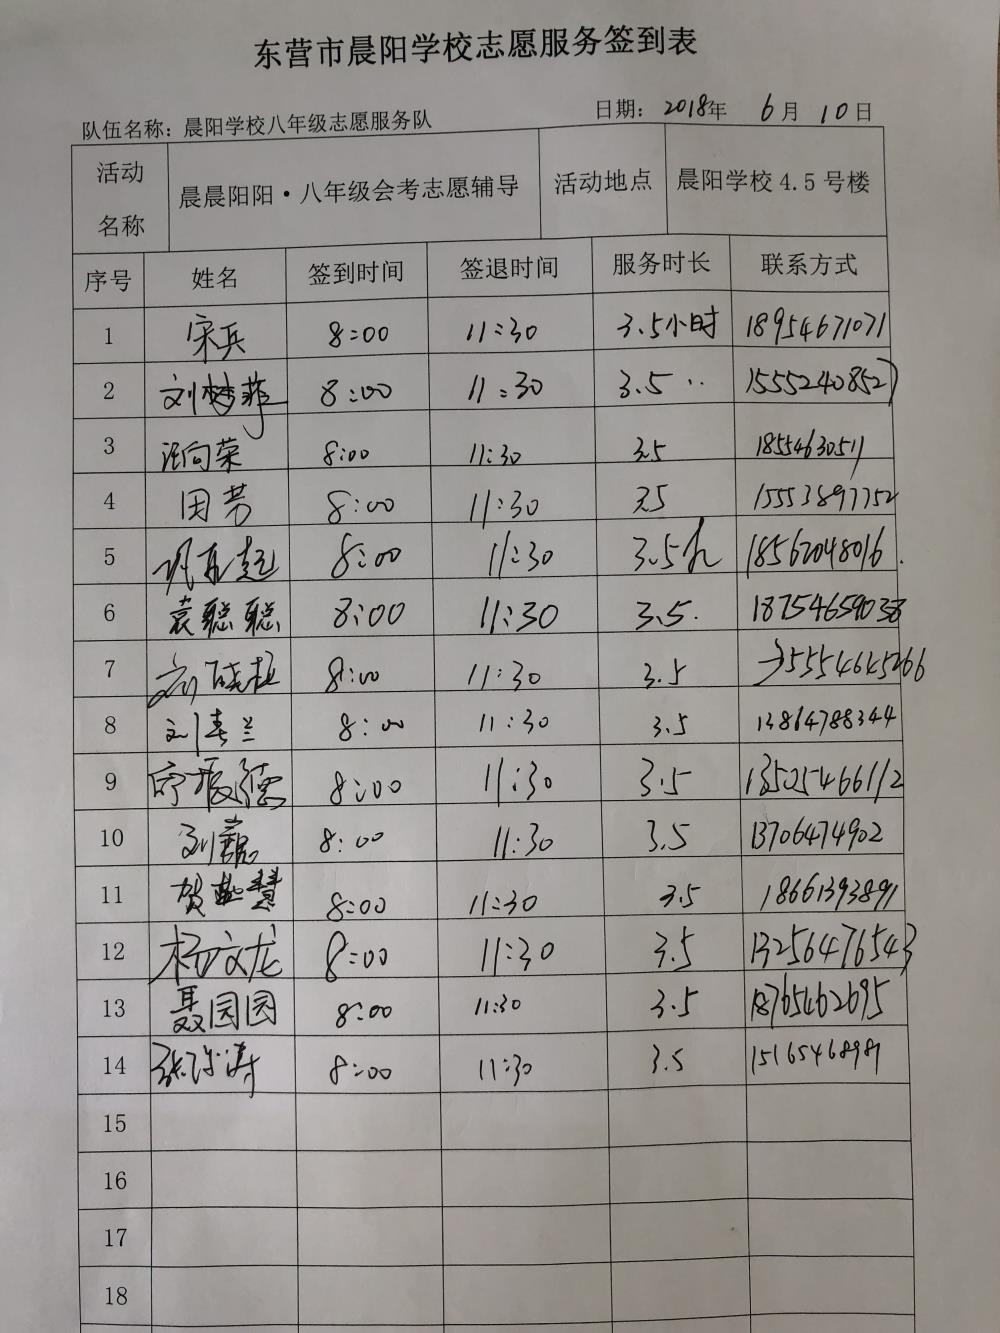 东营市晨阳学校志愿服务签到表
队伍名称：晨阳学校八年级志愿服务队 日期：2018年 6月 10日
活动名称 晨晨阳阳·八年级会考志愿辅导 活动地点 晨阳学校 4.5 号楼
序号 姓名 签到时间 签退时间 服务时长 联系方式
1 宋兵 8:00 11:30 3.5小时 18954671071
2 刘梦菲 8:00 11:30 3.5 ‥ 15552408527
3 汪向荣 8:00 11:30 3.5 18554630511
4 田芳 8:00 11:30 3.5 15553897752
5 8:00 11:30 3.5h 18562048016
6 袁聪聪 8:00 11:30 3.5. 18754659038
7 8:00 11:30 3.5 15554645266
8 刘春兰 8:00 11:30 3.5 13864788344
9 8:00 11:30 3.5 13525466112
10 8:00 11:30 3.5 13706474902
11 8:00 11:30 3.5 18661393891
12 杨文龙 8:00 11:30 3.5 13256476543
13 聂园园 8:00 11:30 3.5 18765462695
14 8:00 11:30 3.5 15165468981
15
16
17
18